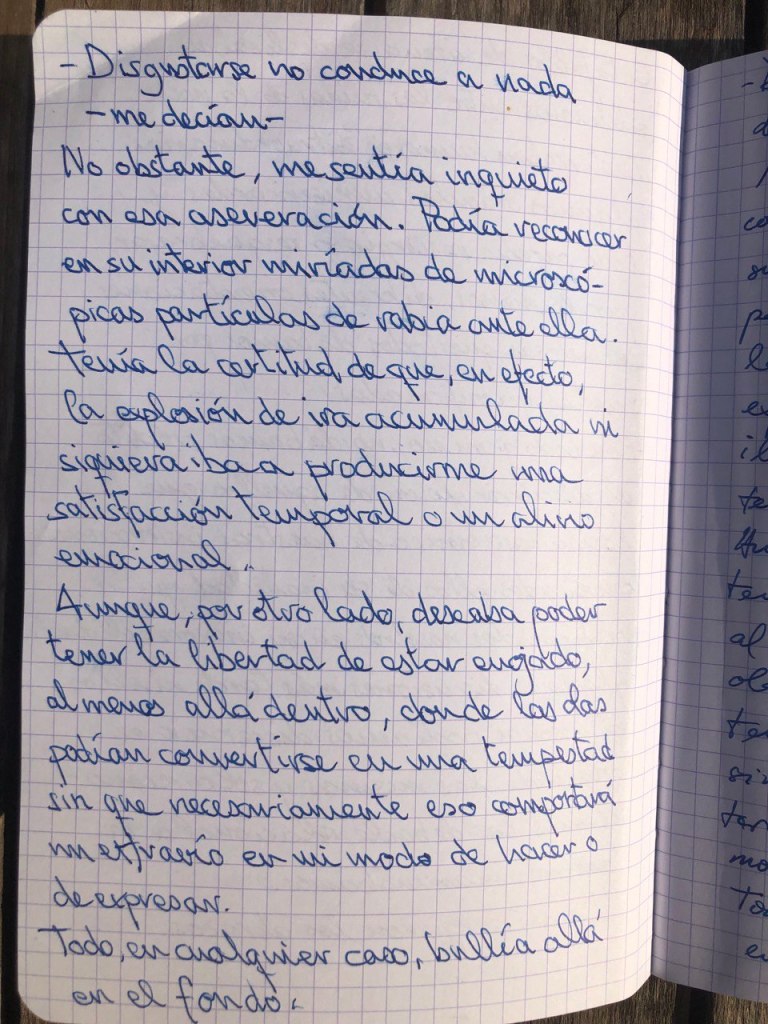 - Disgustarse no conduce a nada
- me decían -
No obstante, me sentía inquieto
con esa aseveración. Podía reconocer
en su interior miríadas de microscó-
picas partículas de rabia ante ella.
tenía la certitud de que, en efecto,
la explosión de ira acumulada ni
siquiera iba a producirme una
satisfacción temporal o un alivio
emocional.
Aunque, por otro lado, deseaba poder
tener la libertad de estar enojado,
al menos allá dentro, donde las olas
podían convertirse en una tempestad
sin que necesariamente eso comportará
un extravío en mi modo de hacer o
de expresar.
Todo, en cualquier caso, bullía allá
en el fondo.